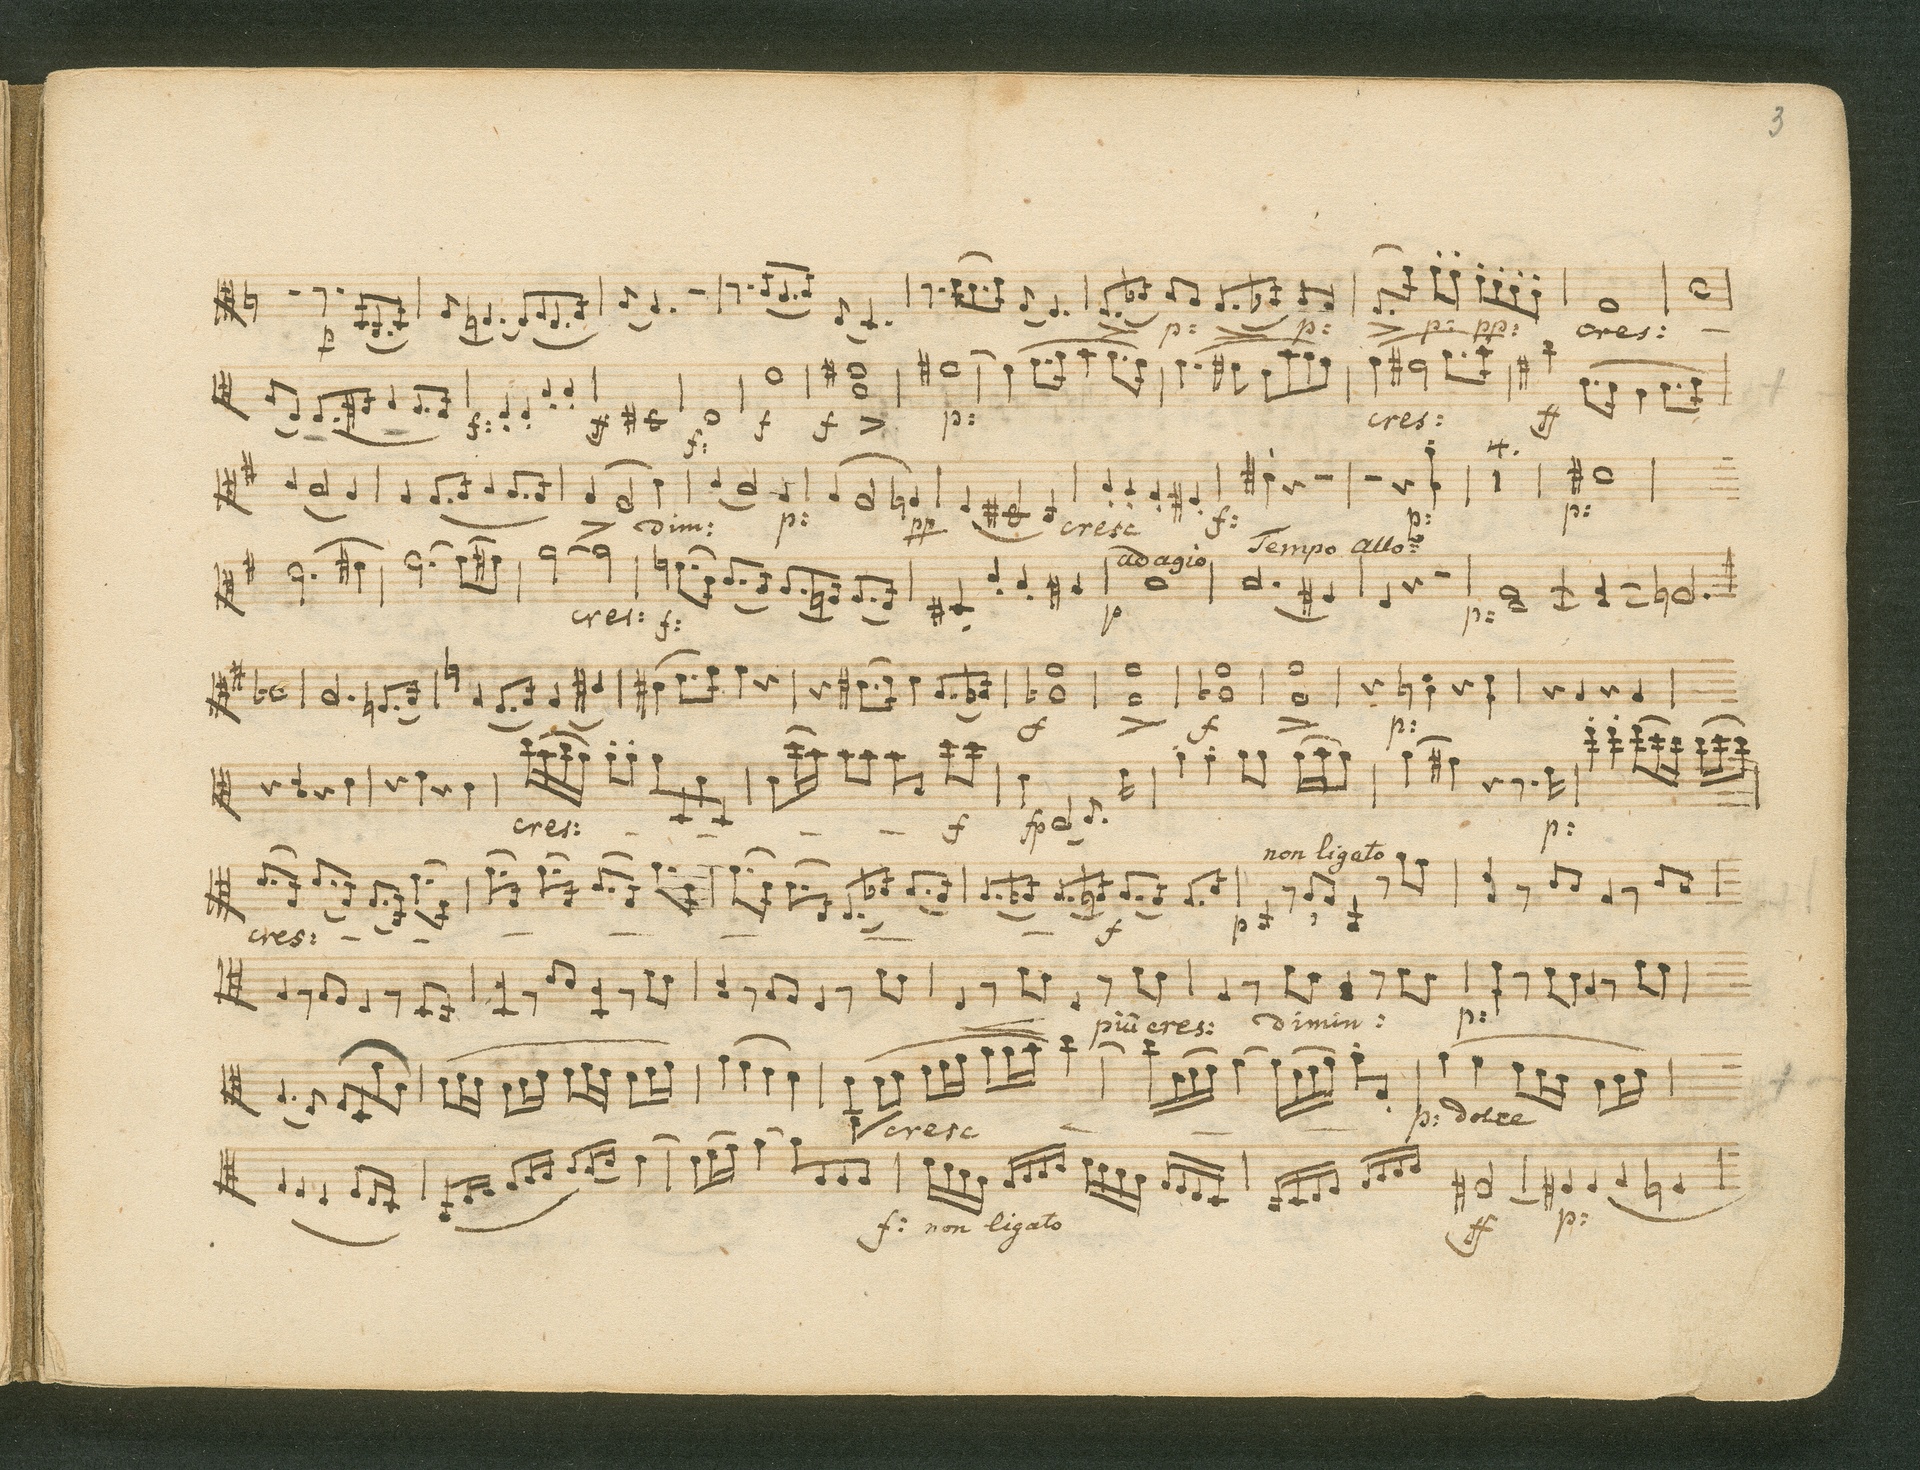 3
p p: p: p: pp: cres:
f: ff f: f f p: cres: ff
4.
dim: p: pp cresc f: p: p:
adagio Tempo Allo:
cres: f: p p:
f f p:
cres: f fp p:
non ligato
cres: f p
più cres: dimin: p:
cresc p: dolce
f: non ligato ff p: